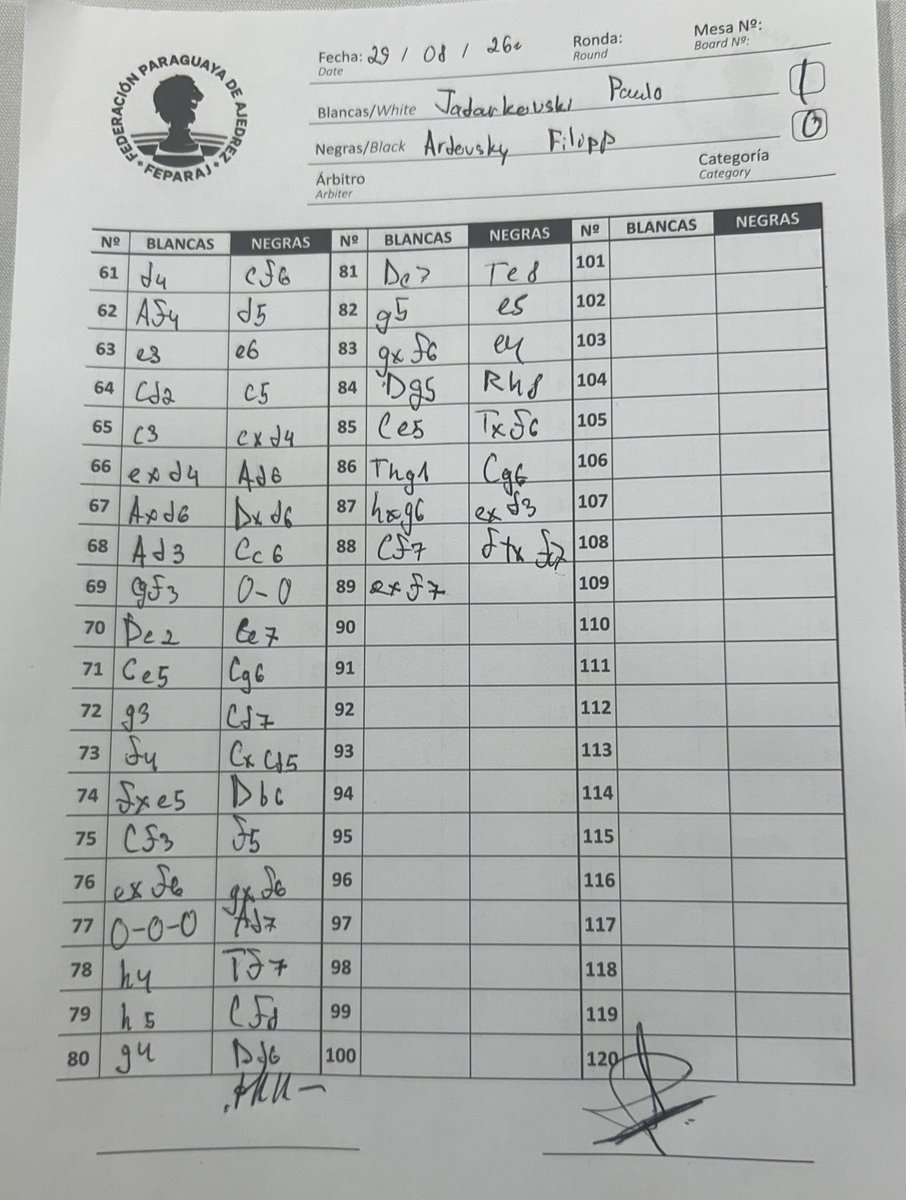 FEDERACIÓN PARAGUAYA DE AJEDREZ
• FEPARAJ •
Fecha: 29 / 08 / 26 Ronda: Mesa Nº:
Date Round Board Nº:
Blancas/White Jadarkovski Paulo 1
Negras/Black Ardovsky Filipp 0
Árbitro Categoría
Arbiter Category
Nº BLANCAS NEGRAS Nº BLANCAS NEGRAS Nº BLANCAS NEGRAS
61 d4 Cf6 81 Dc7 Te8 101
62 Af4 d5 82 g5 e5 102
63 e3 e6 83 gxf6 e4 103
64 Cd2 c5 84 Dg5 Rh8 104
65 c3 cxd4 85 Ce5 Txf6 105
66 exd4 Ad6 86 Thg1 Cg6 106
67 Axd6 Dxd6 87 hxg6 exd3 107
68 Ad3 Cc6 88 Cf7 108
69 gf3 0-0 89 exf7 109
70 De2 Ce7 90 110
71 Ce5 Cg6 91 111
72 g3 Cd7 92 112
73 f4 93 113
74 fxe5 Db6 94 114
75 Cf3 f5 95 115
76 exf6 gxf6 96 116
77 0-0-0 Ad7 97 117
78 h4 Tf7 98 118
79 h5 Cf8 99 119
80 g4 Dd6 100 120